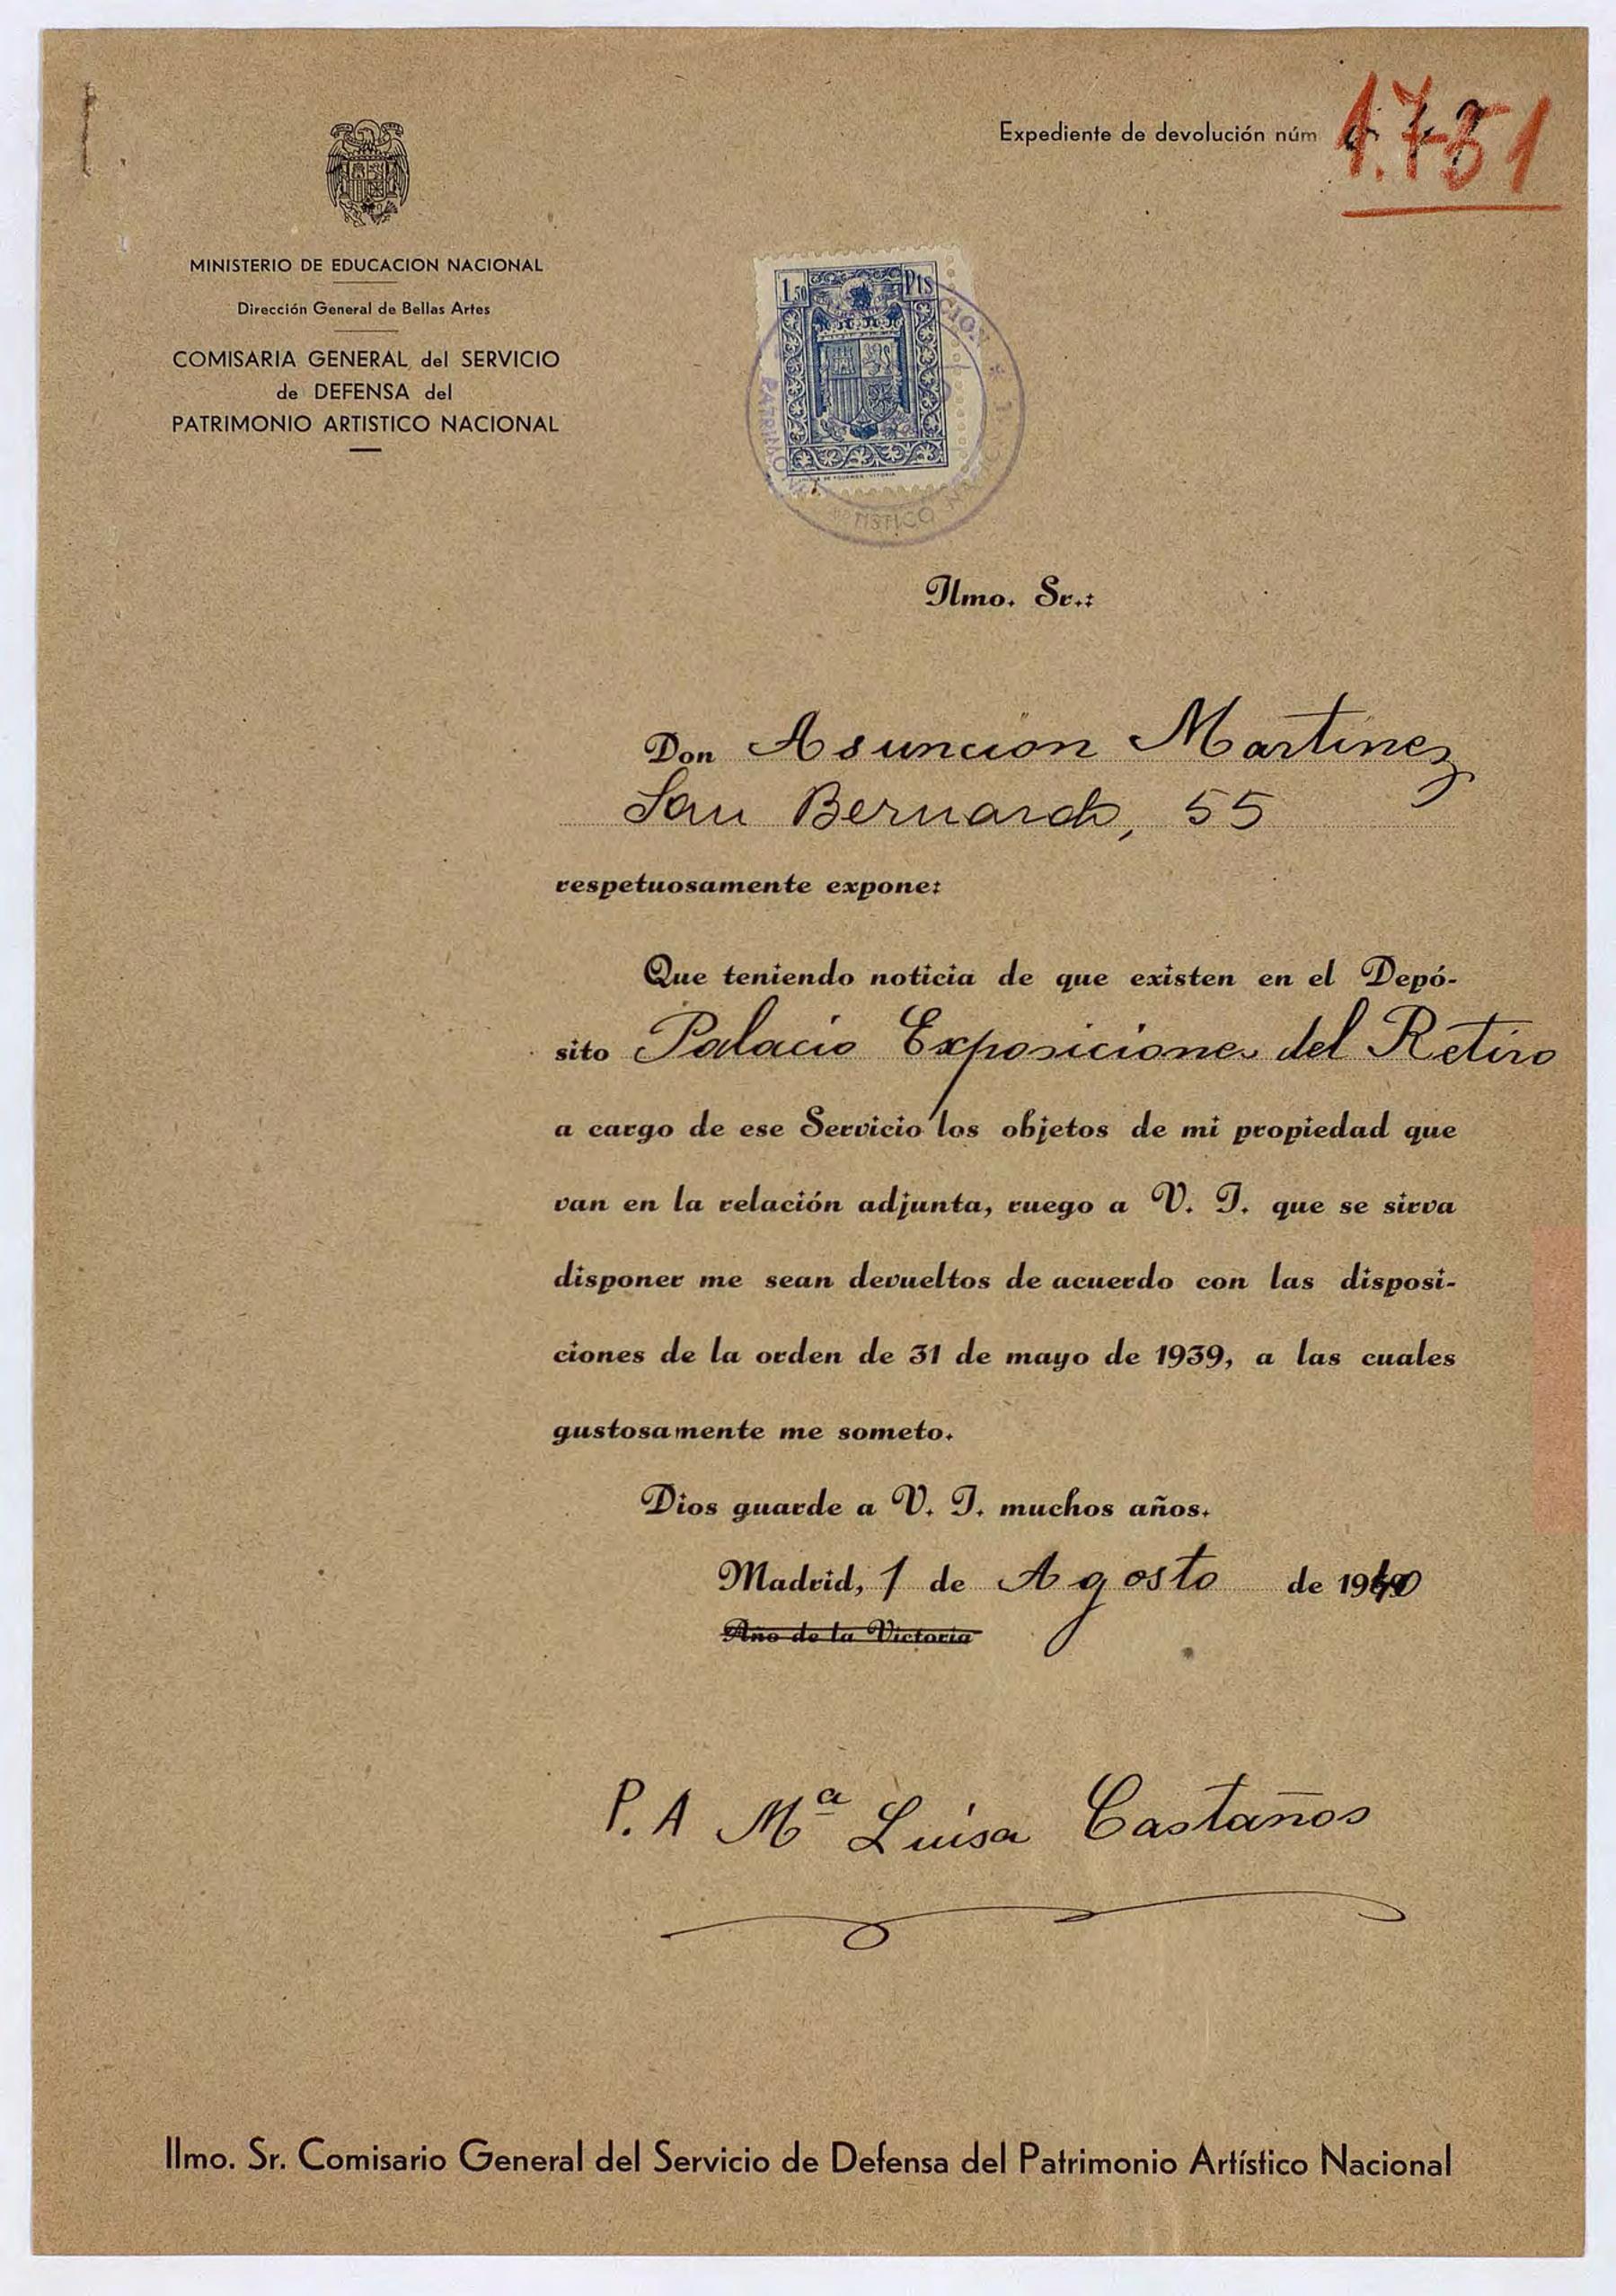 Expediente de devolución núm 1.751
MINISTERIO DE EDUCACION NACIONAL
Dirección General de Bellas Artes
COMISARIA GENERAL del SERVICIO
de DEFENSA del
PATRIMONIO ARTISTICO NACIONAL
1,50 Pts
Ilmo. Sr.:
Don Asuncion Martinez
San Bernardo, 55
respetuosamente expone:
Que teniendo noticia de que existen en el Depó-
sito Palacio Exposiciones del Retiro
a cargo de ese Servicio los objetos de mi propiedad que
van en la relación adjunta, ruego a V. I. que se sirva
disponer me sean devueltos de acuerdo con las disposi-
ciones de la orden de 31 de mayo de 1939, a las cuales
gustosamente me someto.
Dios guarde a V. I. muchos años.
Madrid, 1 de Agosto de 1940
Año de la Victoria
P. A Mª Luisa Castaños
Ilmo. Sr. Comisario General del Servicio de Defensa del Patrimonio Artístico Nacional